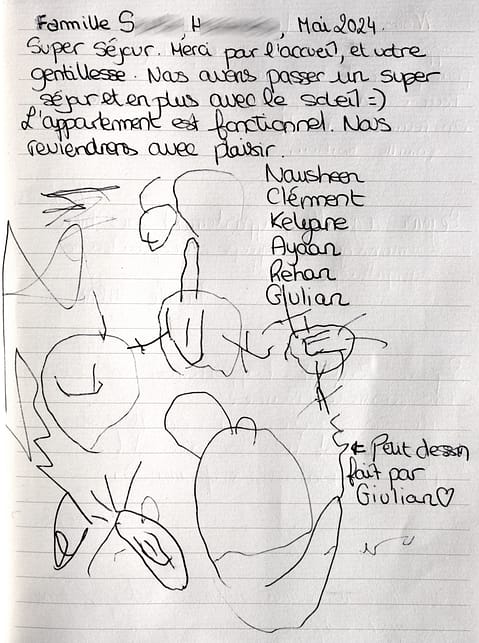 Famille S , H , Mai 2024.
Super séjour. Merci par l'accueil, et votre
gentillesse. Nous avons passer un super
séjour et en plus avec le soleil =)
L'appartement est fonctionnel. Nous
reviendrons avec plaisir.
Nausheen
Clément
Kelyane
Ayaan
Rehan
Giulian
← Petit dessin
fait par
Giulian ♡